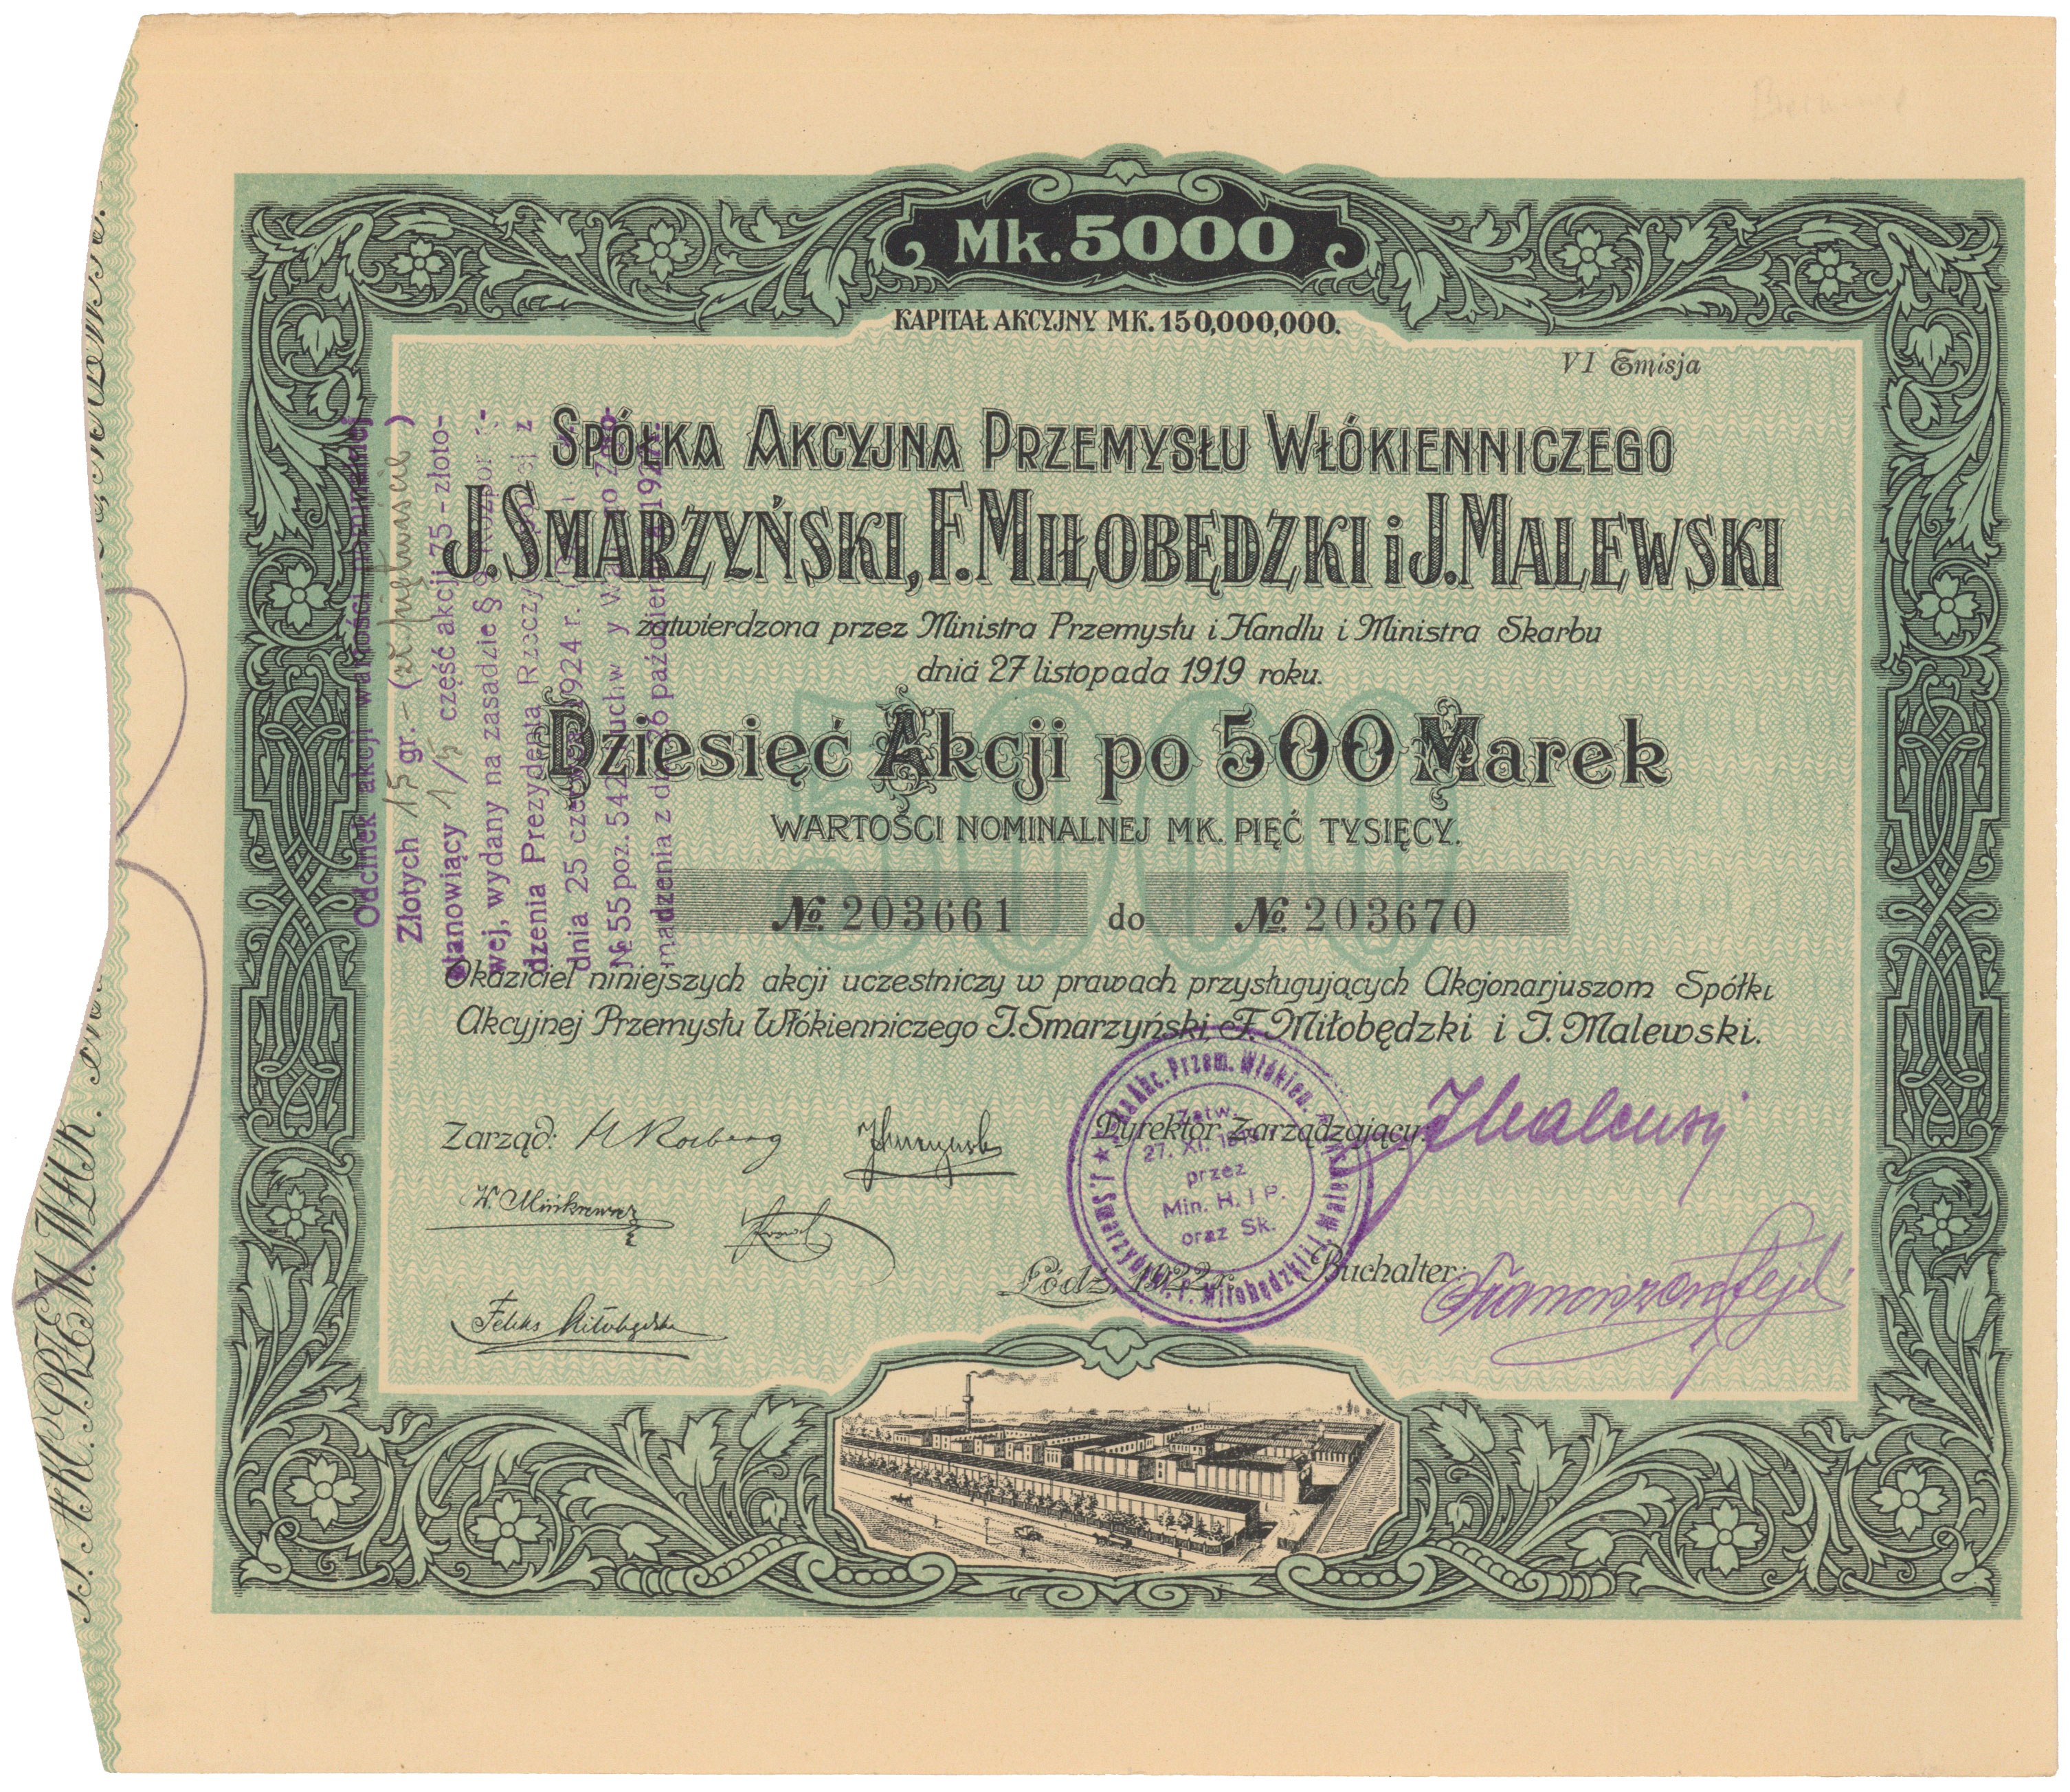 Mk. 5000
KAPITAŁ AKCYJNY MK. 150,000,000.
VI Emisja
SPÓŁKA AKCYJNA PRZEMYSŁU WŁÓKIENNICZEGO
J. SMARZYŃSKI, F. MIŁOBĘDZKI i J. MALEWSKI
zatwierdzona przez Ministra Przemysłu i Handlu i Ministra Skarbu
dnia 27 listopada 1919 roku.
Dziesięć Akcji po 500 Marek
WARTOŚCI NOMINALNEJ MK. PIĘĆ TYSIĘCY.
5000
№ 203661 do № 203670
Okaziciel niniejszych akcji uczestniczy w prawach przysługujących Akcjonarjuszom Spółki
Akcyjnej Przemysłu Włókienniczego J. Smarzyński, F. Miłobędzki i J. Malewski.
Zarząd:
Dyrektor Zarządzający:
Feliks Miłobędzki
Łódź, 1922 r.
Buchalter:
Akc. Przem. Włókien.
J. Smarzyński, F. Miłobędzki i J. Malewski
Zatw.
27. XI. 1919
przez
Min. H. i P.
oraz Sk.
Odcinek akcji wartości nominalnej
Złotych 15 gr. – (zł. piętnaście)
stanowiący 1/5 część akcji 75-złoto-
wej, wydany na zasadzie § 9 Rozpor
dzenia Prezydenta Rzeczypospolitej z
dnia 25 czerwca 1924 r.
№ 55 poz. 542 uchw y Walnego Zgro-
madzenia z dnia 26 październ
SP. AKC. PRZEM. WŁÓK.